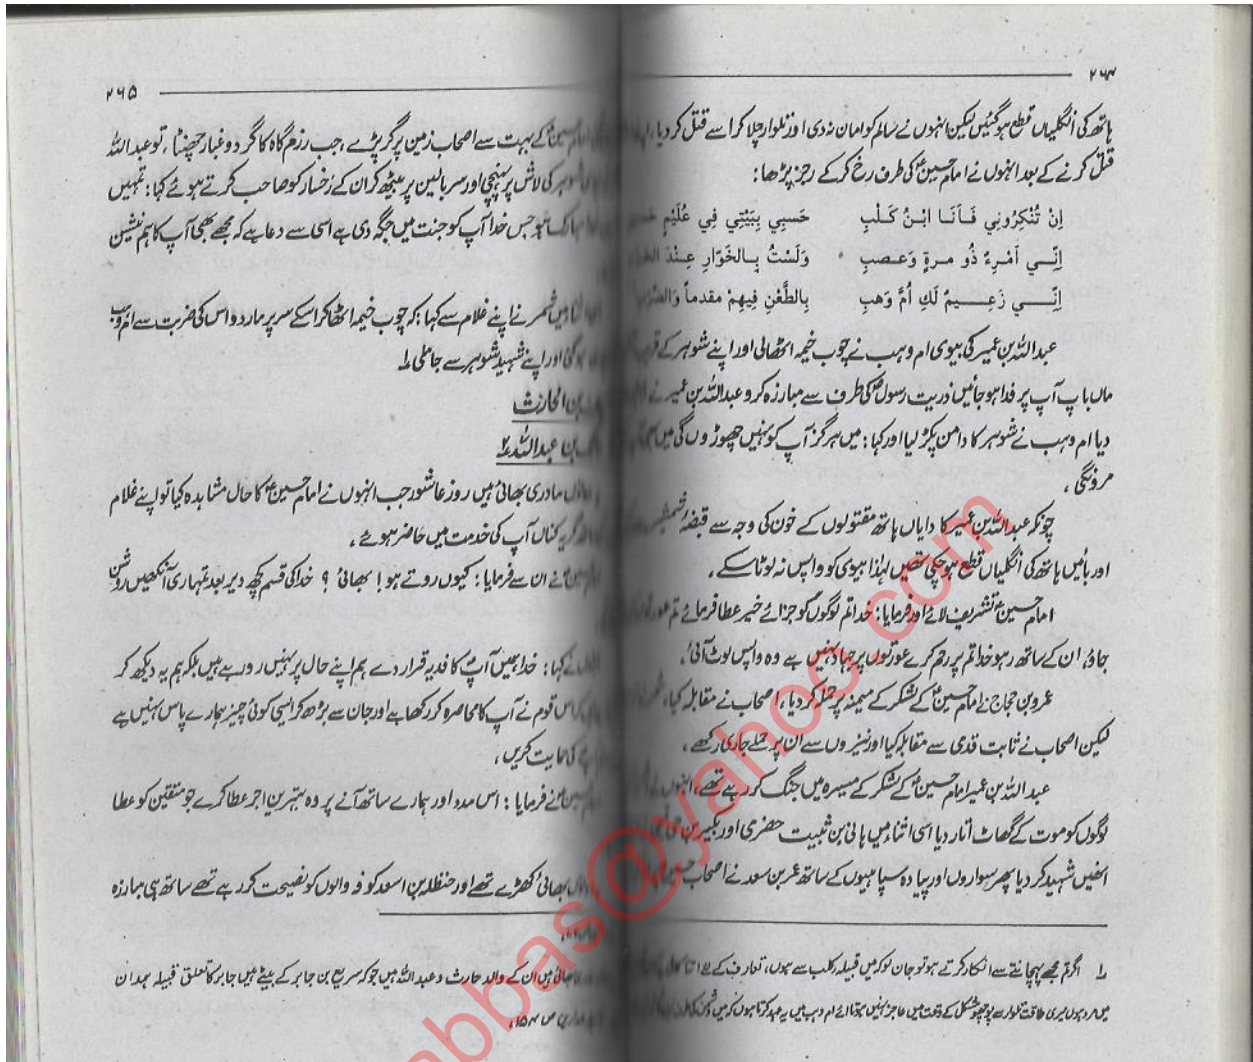 ۲۶۴
ہاتھ کی انگلیاں قطع ہوگئیں لیکن انہوں نے سالم کو امان نہ دی اور تلوار چلا کر اسے قتل کر دیا،
قتل کرنے کے بعد انہوں نے امام حسینؑ کی طرف رخ کرکے رجز پڑھا:
اِنْ تُنْكِرُونِي فَاَنَا ابْنُ كَلْبِ حَسبِي بِبَيْتِي فِي عُلَيْمٍ
اِنِّي اَمْرِءٌ ذُو مرةٍ وَعصبِ وَلَسْتُ بِالخَوَّارِ عِنْدَ
اِنِّي زَعِيمٌ لَكِ اُمَّ وَهبِ بِالطَّعْنِ فِيهِمْ مقدماً
عبداللہ بن عمیر کی بیوی ام وہب نے چوب خیمہ اٹھالی اور اپنے شوہر کے
ماں باپ آپ پر فدا ہو جائیں ذریت رسولؐ کی طرف سے مبارزہ کرو عبداللہ بن عمیر نے
دیا ام وہب نے شوہر کا دامن پکڑ لیا اور کہا: میں ہرگز آپ کو نہیں چھوڑوں گی میں بھی
مرونگی ،
چونکہ عبداللہ بن عمیر کا دایاں ہاتھ مقتولوں کے خون کی وجہ سے قبضہ شمشیر
اور بائیں ہاتھ کی انگلیاں قطع ہو چکی تھیں لہٰذا بیوی کو واپس نہ لوٹا سکے ،
امام حسینؑ تشریف لائے اور فرمایا: خدا تم لوگوں کو جزائے خیر عطا فرمائے تم
جاؤ ان کے ساتھ رہو خدا تم پر رحم کرے عورتوں پر جہاد نہیں ہے وہ واپس لوٹ آئی،
عمرو بن حجاج نے امام حسینؑ کے لشکر کے میمنہ پر حملہ کر دیا، اصحاب نے مقابلہ کیا،
لیکن اصحاب نے ثابت قدمی سے مقابلہ کیا اور نیزوں سے ان پر حملے جاری رکھے ،
عبداللہ بن عمیر امام حسینؑ کے لشکر کے میسرہ میں جنگ کر رہے تھے، انہوں نے
لوگوں کو موت کے گھاٹ اتار دیا اسی اثناء میں ہانی بن ثبیت حضری اور بکیر بن حی
انھیں شہید کر دیا پھر سواروں اور پیادہ سپاہیوں کے ساتھ عمر بن سعد نے اصحاب
۱؎ اگر تم مجھے پہچاننے سے انکار کرتے ہو تو جان لو کہ میں قبیلہ کلب سے ہوں، تعارف کے لئے اتنا کافی
میں مرد ہوں میری طاقت تلوار سے پوچھو مشکل کے وقت میں عاجز نہیں ہوتا اے ام وہب میں یہ عہد کرتا ہوں کہ میں دشمن
۲۶۵
کے بہت سے اصحاب زمین پر گر پڑے، جب رزم گاہ کا گرد و غبار چھٹا، تو عبداللہ
شوہر کی لاش پر پہنچی اور سر بالین پر بیٹھ کر ان کے رخسار کو صاف کرتے ہوئے کہا: تمہیں
مبارک ہو جس خدا آپ کو جنت میں جگہ دی ہے اسی سے دعا ہے کہ مجھے بھی آپ کا ہم نشین
میں شمر نے اپنے غلام سے کہا: کہ چوب خیمہ اٹھا کر اسکے سر پر مار دو اس کی ضربت سے ام وہب
ہو گئی اور اپنے شہید شوہر سے جا ملی ۱؎
بن الحارث
بن عبداللہ ۲؎
مادری بھائی ہیں روز عاشور جب انہوں نے امام حسینؑ کا حال مشاہدہ کیا تو اپنے غلام
گریہ کناں آپ کی خدمت میں حاضر ہوئے ،
نے ان سے فرمایا: کیوں روتے ہو! بھائی؟ خدا کی قسم کچھ دیر بعد تمہاری آنکھیں روشن
نے کہا: خدا ہمیں آپؑ کا فدیہ قرار دے ہم اپنے حال پر نہیں رو رہے ہیں بلکہ ہم یہ دیکھ کر
کہ اس قوم نے آپ کا محاصرہ کر رکھا ہے اور جان سے بڑھ کر ایسی کوئی چیز ہمارے پاس نہیں ہے
کی حمایت کریں ،
نے فرمایا: اس مدد اور ہمارے ساتھ آنے پر وہ بہترین اجر عطا کرے جو متقین کو عطا
بھائی کھڑے تھے اور حنظلہ بن اسعد کوفہ والوں کو نصیحت کر رہے تھے ساتھ ہی مبارزہ
بھائی ہیں ان کے والد حارث و عبداللہ ہیں جو کہ سریع بن جابر کے بیٹے ہیں جابر کا تعلق قبیلہ ہمدان
ص ۱۵۴،
abbas@yahoo.com